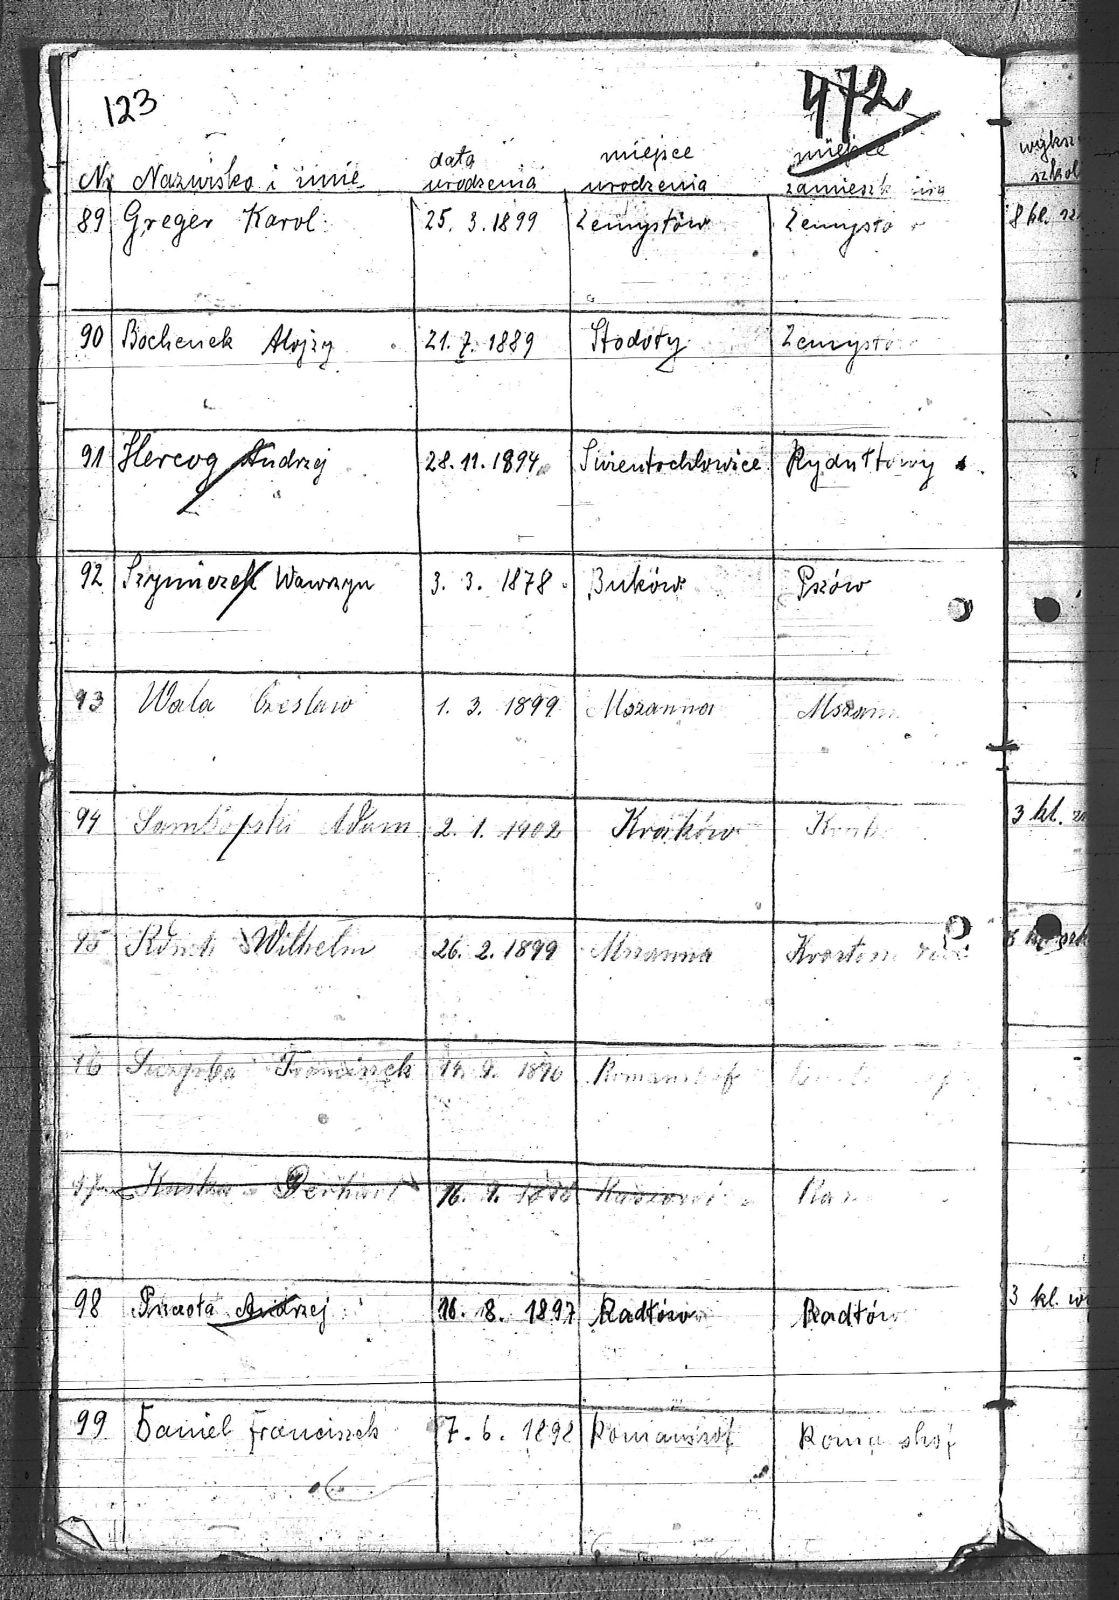 123
472
Nr Nazwisko i imię data urodzenia miejsce urodzenia miejsce zamieszk wyksz szkol
89 Greger Karol 25. 3. 1899 Zemysłów Zemysło 8 kl. sz
90 Bochenek Alojzy 21. 7. 1889 Stodoły Zemysło
91 Hercog Andrzej 28. 11. 1894 Świentochłowice Rydułtowy
92 Szymiczek Wawrzyn 3. 3. 1878 Buków Pszów
93 Wala Czesław 1. 3. 1899 Mszanna Mszan
94 Adam 2. 1. 1902 Kraków Krak 3 kl.
95 Wilhelm 26. 2. 1899 Mszanna
96 Franciszek 1890 Romanshof
97 Gerhart 16. 9.
98 Andrzej 16. 8. 1897 Radłów Radłów 3 kl. w
99 Daniel Franciszek 7. 6. 1892 Romanshof Roma shof